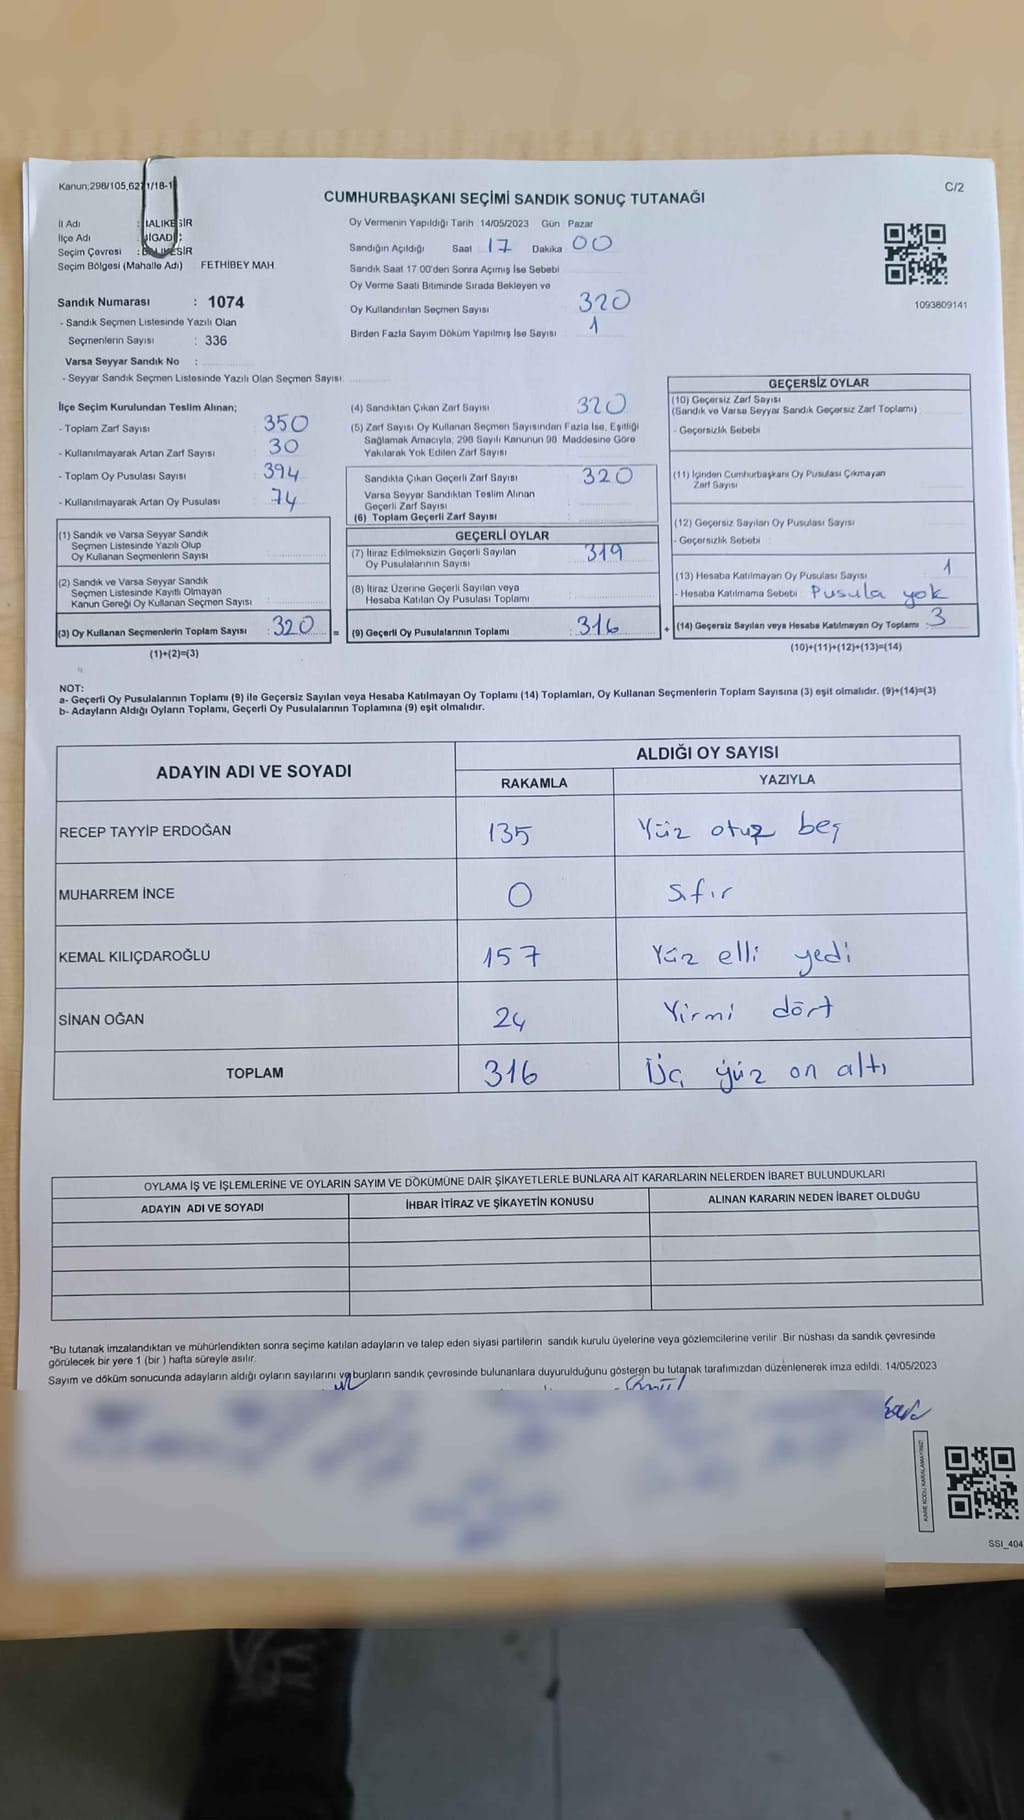 Kanun:298/105,627 1/18-1
C/2
CUMHURBAŞKANI SEÇİMİ SANDIK SONUÇ TUTANAĞI
İl Adı : ALIKESİR
İlçe Adı : IGADİ
Seçim Çevresi : BALIKESİR
Seçim Bölgesi (Mahalle Adı) FETHİBEY MAH
Oy Vermenin Yapıldığı Tarih 14/05/2023 Gün Pazar
Sandığın Açıldığı Saat 17 Dakika 00
Sandık Saat 17:00'den Sonra Açımış İse Sebebi
Oy Verme Saati Bitiminde Sırada Bekleyen ve
Oy Kullandırılan Seçmen Sayısı 320
Birden Fazla Sayım Döküm Yapılmış İse Sayısı 1
1093809141
Sandık Numarası : 1074
- Sandık Seçmen Listesinde Yazılı Olan
Seçmenlerin Sayısı : 336
Varsa Seyyar Sandık No :
- Seyyar Sandık Seçmen Listesinde Yazılı Olan Seçmen Sayısı:
İlçe Seçim Kurulundan Teslim Alınan;
- Toplam Zarf Sayısı 350
- Kullanılmayarak Artan Zarf Sayısı 30
- Toplam Oy Pusulası Sayısı 394
- Kullanılmayarak Artan Oy Pusulası 74
(1) Sandık ve Varsa Seyyar Sandık
Seçmen Listesinde Yazılı Olup
Oy Kullanan Seçmenlerin Sayısı
(2) Sandık ve Varsa Seyyar Sandık
Seçmen Listesinde Kayıtlı Olmayan
Kanun Gereği Oy Kullanan Seçmen Sayısı
(3) Oy Kullanan Seçmenlerin Toplam Sayısı : 320 =
(1)+(2)=(3)
(4) Sandıktan Çıkan Zarf Sayısı 320
(5) Zarf Sayısı Oy Kullanan Seçmen Sayısından Fazla İse, Eşitliği
Sağlamak Amacıyla, 298 Sayılı Kanunun 98. Maddesine Göre
Yakılarak Yok Edilen Zarf Sayısı
Sandıkta Çıkan Geçerli Zarf Sayısı 320
Varsa Seyyar Sandıktan Teslim Alınan
Geçerli Zarf Sayısı
(6) Toplam Geçerli Zarf Sayısı
GEÇERLİ OYLAR
(7) İtiraz Edilmeksizin Geçerli Sayılan
Oy Pusulalarının Sayısı 319
(8) İtiraz Üzerine Geçerli Sayılan veya
Hesaba Katılan Oy Pusulası Toplamı
(9) Geçerli Oy Pusulalarının Toplamı : 316 +
GEÇERSİZ OYLAR
(10) Geçersiz Zarf Sayısı
(Sandık ve Varsa Seyyar Sandık Geçersiz Zarf Toplamı)
- Geçersizlik Sebebi
(11) İçinden Cumhurbaşkanı Oy Pusulası Çıkmayan
Zarf Sayısı
(12) Geçersiz Sayılan Oy Pusulası Sayısı
- Geçersizlik Sebebi
(13) Hesaba Katılmayan Oy Pusulası Sayısı 1
- Hesaba Katılmama Sebebi Pusula yok
(14) Geçersiz Sayılan veya Hesaba Katılmayan Oy Toplamı : 3
(10)+(11)+(12)+(13)=(14)
NOT:
a- Geçerli Oy Pusulalarının Toplamı (9) ile Geçersiz Sayılan veya Hesaba Katılmayan Oy Toplamı (14) Toplamları, Oy Kullanan Seçmenlerin Toplam Sayısına (3) eşit olmalıdır. (9)+(14)=(3)
b- Adayların Aldığı Oyların Toplamı, Geçerli Oy Pusulalarının Toplamına (9) eşit olmalıdır.
ADAYIN ADI VE SOYADI
ALDIĞI OY SAYISI
RAKAMLA YAZIYLA
RECEP TAYYİP ERDOĞAN 135 Yüz otuz beş
MUHARREM İNCE 0 Sıfır
KEMAL KILIÇDAROĞLU 157 Yüz elli yedi
SİNAN OĞAN 24 Yirmi dört
TOPLAM 316 Üç yüz on altı
OYLAMA İŞ VE İŞLEMLERİNE VE OYLARIN SAYIM VE DÖKÜMÜNE DAİR ŞİKAYETLERLE BUNLARA AİT KARARLARIN NELERDEN İBARET BULUNDUKLARI
ADAYIN ADI VE SOYADI İHBAR İTİRAZ VE ŞİKAYETİN KONUSU ALINAN KARARIN NEDEN İBARET OLDUĞU
*Bu tutanak imzalandıktan ve mühürlendikten sonra seçime katılan adayların ve talep eden siyasi partilerin sandık kurulu üyelerine veya gözlemcilerine verilir .Bir nüshası da sandık çevresinde
görülecek bir yere 1 (bir ) hafta süreyle asılır.
Sayım ve döküm sonucunda adayların aldığı oyların sayılarını ve bunların sandık çevresinde bulunanlara duyurulduğunu gösteren bu tutanak tarafımızdan düzenlenerek imza edildi. 14/05/2023
KARE KODU KARALAMAYINIZ!
SSI_404